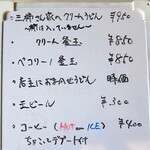 ・三郷さん家のクリームうどん ¥950
・クリーム釜玉 ¥850
・ペコリーノ釜玉 ¥850
・店主におまかせうどん 時価
・生ビール ¥300
・コーヒー (HOT or ICE) ¥400
ちょこっとデザート付